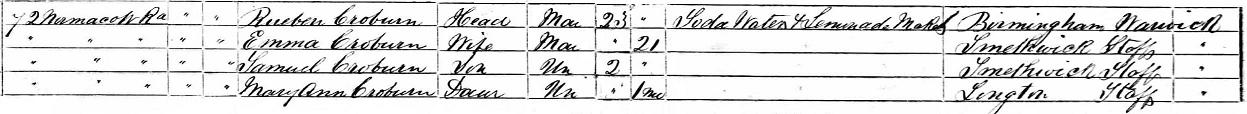 72 Normacott Rd " " Rueben Croburn Head Mar 23 " Soda Water & Lemonade Maker Birmingham Warwick
" " " " " Emma Croburn Wife Mar " 21 Smethwick Staff "
" " " " " Samuel Croburn Son Un 2 " Smethwick Staff "
" " " " " Mary Ann Croburn Daur Un " 1 mo Longton Staff "